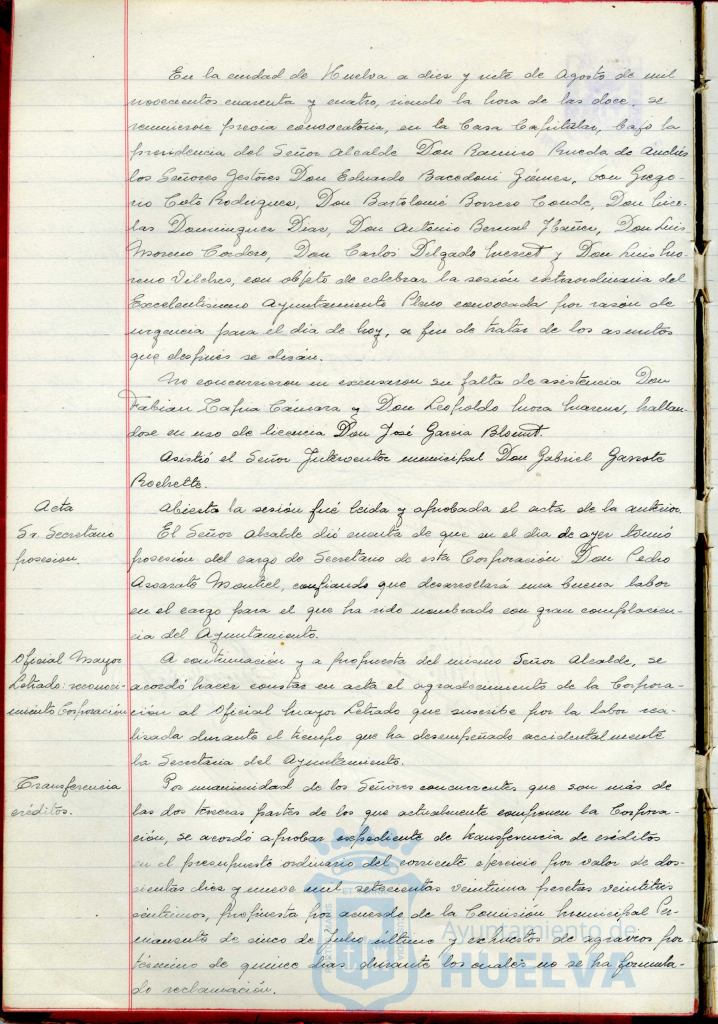 En la ciudad de Huelva a diez y siete de Agosto de mil
novecientos cuarenta y cuatro, siendo la hora de las doce, se
reunieron previa convocatoria, en la Casa Capitular, bajo la
presidencia del Señor Alcalde Don Ramiro Rueda de Andrés
los Señores Gestores Don Eduardo Bacedoni Giémez, Don Grego-
rio Ceto Rodriguez, Don Bartolomé Borrero Conde, Don Nico-
las Dominguez Diaz, Don Antonio Bernal Ibañez, Don Luis
Moreno Cordero, Don Carlos Delgado y Don Luis Mo-
reno Vilches, con objeto de celebrar la sesión extraordinaria del
Excelentisimo Ayuntamiento Pleno convocada por razón de
urgencia para el dia de hoy, a fin de tratar de los asuntos
que después se dirán.
No concurrieron ni excusaron su falta de asistencia Don
Fabian Tapia Cámara y Don Leopoldo Mora hallan-
dose en uso de licencia Don José Garcia Blomet.
Asistió el Señor Interventor municipal Don Gabriel Garrote
Rochette.
Acta
Abierta la sesión fué leida y aprobada el acta de la anterior.
Sr. Secretario
posesion.
El Señor Alcalde dió cuenta de que en el dia de ayer tomó
posesión del cargo de Secretario de esta Corporación Don Pedro
Ascarate Montiel, confiando que desarrollará una buena labor
en el cargo para el que ha sido nombrado con gran complacen-
cia del Ayuntamiento.
Oficial Mayor
Letrado: reconoci-
miento Corporación
A continuación y a propuesta del mismo Señor Alcalde, se
acordó hacer constar en acta el agradecimiento de la Corpora-
ción al Oficial Mayor Letrado que suscribe por la labor rea-
lizada durante el tiempo que ha desempeñado accidentalmente
la Secretaria del Ayuntamiento.
Transferencia
créditos.
Por unanimidad de los Señores concurrentes que son más de
las dos terceras partes de los que actualmente componen la Corpora-
ción, se acordó aprobar expediente de transferencia de créditos
en el presupuesto ordinario del corriente ejercicio por valor de dos-
cientas diez y nueve mil setecientas veintiuna pesetas veintitres
centimos, propuesta por acuerdo de la Comisión Municipal Per-
manente de cinco de Julio último y exhuesto de agravios por
término de quince dias, durante los cuales no se ha formula-
do reclamación.
Ayuntamiento de
HUELVA